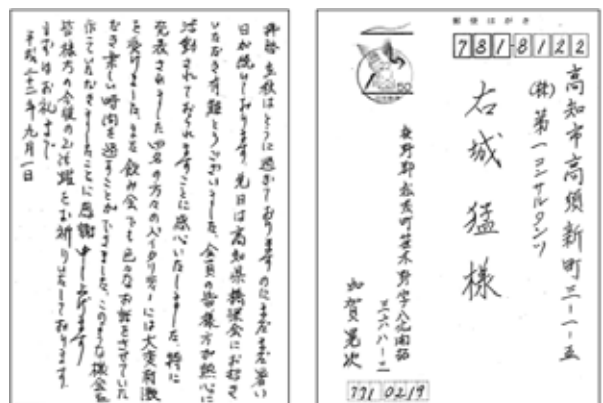 拝啓 立秋はとうに過ぎておりますのにまだまだ暑い
日が続いております。先日は高知県橋梁会にお招き
いただき有難とうございました。会員の皆様方が熱心に
活動されておられますことに感心いたしました。特に
発表されました四名の方々のバイタリティーには大変刺激
を受けました。また飲み会でも色々なお話をさせていた
だき楽しい時間を過すことができました。このような機会を
作っていただきましたことに感謝申し上げます。
皆様方の今後のご活躍をお祈りいたしております。
まずはお礼まで
平成二十二年九月一日
郵便はがき
781-8122
50
高知市高須新町三-一-五
(株)第一コンサルタンツ
右城 猛 様
板野郡松茂町笹木野字八北開拓
加賀晃次
771 0219